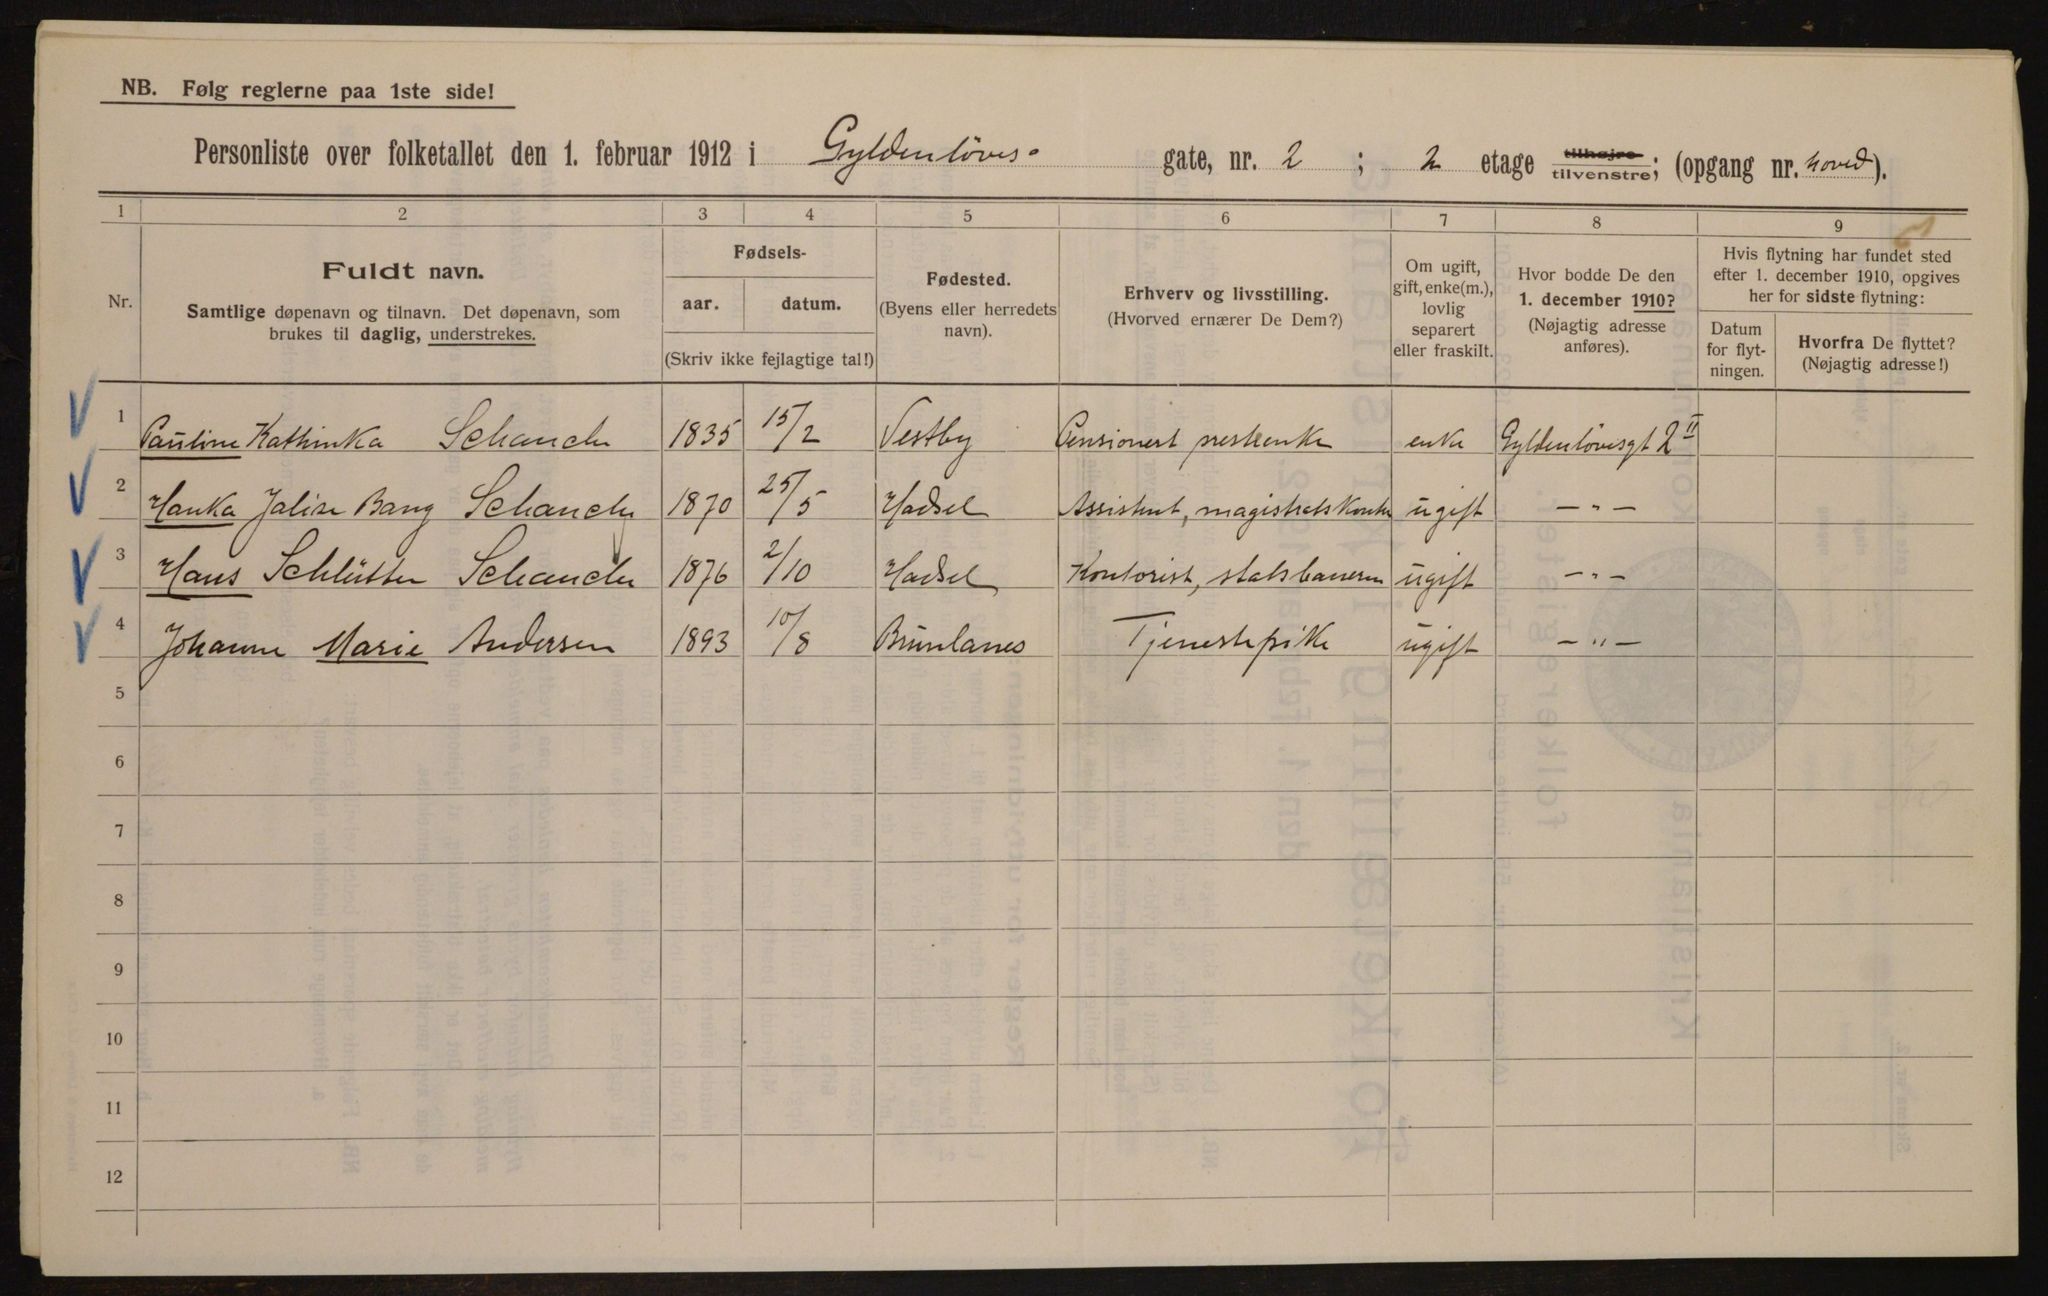 NB. Følg reglerne paa 1ste side!
Personliste over folketallet den 1. februar 1912 i Gyldenløves- gate, nr. 2 ; 2 etage tilhøjre tilvenstre; (opgang nr. hoved).
1 2 3 4 5 6 7 8 9
Nr.
Fuldt navn.
Samtlige døpenavn og tilnavn. Det døpenavn, som
brukes til daglig, understrekes.
Fødsels-
aar. datum.
(Skriv ikke fejlagtige tal!)
Fødested.
(Byens eller herredets
navn).
Erhverv og livsstilling.
(Hvorved ernærer De Dem?)
Om ugift,
gift, enke(m.),
lovlig
separert
eller fraskilt.
Hvor bodde De den
1. december 1910?
(Nøjagtig adresse
anføres).
Hvis flytning har fundet sted
efter 1. december 1910, opgives
her for sidste flytning:
Datum
for flyt-
ningen.
Hvorfra De flyttet?
(Nøjagtig adresse!)
1 Pauline Kathinka Schanche 1835 15/2 Vestby Pensionert prestenke enke Gyldenløvesgt 2 II
2 Hanka Bang Schanche 1870 25/5 Hadsel Assistent, magistratskontor ugift — " —
3 Hans Schlütter Schanche 1876 2/10 Hadsel Kontorist, statsbanerne ugift — " —
4 Johanne Marie Andersen 1893 10/8 Brunlanes Tjenestepike ugift — " —
5
6
7
8
9
10
11
12